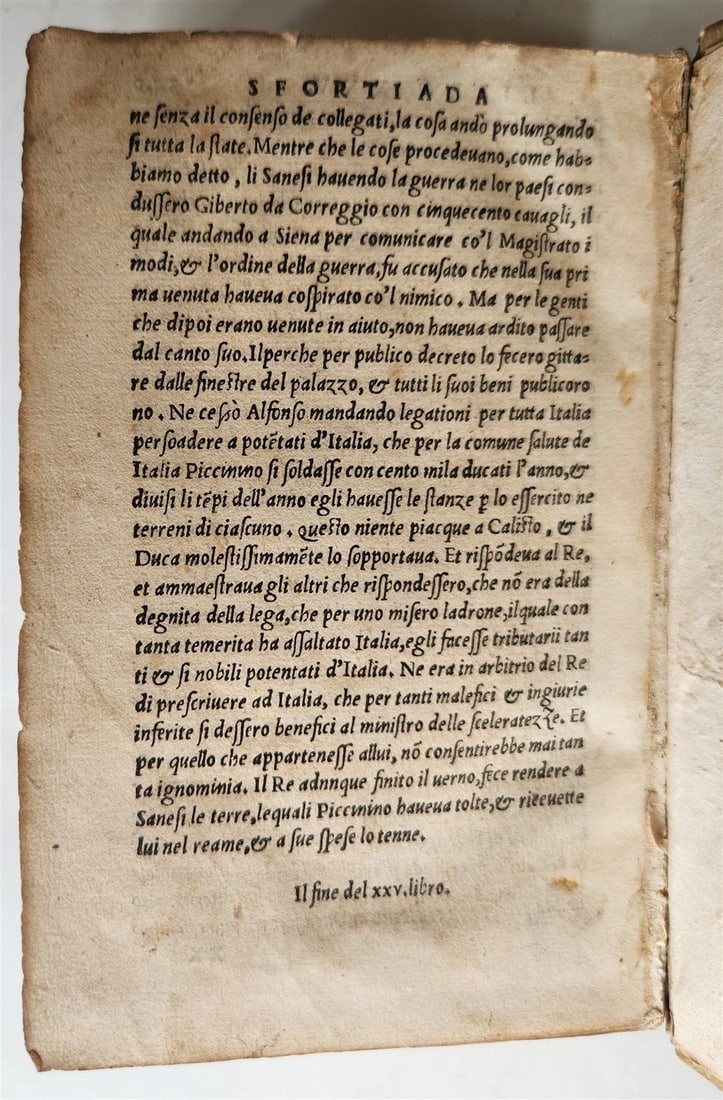 SFORTIADA
ne ſenza il conſenſo de collegati,la coſa andò prolungando
ſi tutta la ſtate.Mentre che le coſe procedeuano,come hab=
biamo detto , li Saneſi hauendo la guerra ne lor paeſi con=
duſſero Giberto da Correggio con cinquecento cauagli, il
quale andando a Siena per comunicare co'l Magiſtrato i
modi,& l'ordine della guerra,fu accuſato che nella ſua pri
ma uenuta haueua coſpirato co'l nimico . Ma per le genti
che dipoi erano uenute in aiuto,non haueua ardito paſſare
dal canto ſuo.Ilperche per publico decreto lo fecero gitta=
re dalle fineſtre del palazzo, & tutti li ſuoi beni publicoro
no . Ne ceſſò Alfonſo mandando legationi per tutta Italia
perſoadere a potẽtati d'Italia, che per la comune ſalute de
Italia Piccinino ſi ſoldaſſe con cento mila ducati l'anno,&
diuiſi li tẽpi dell'anno egli haueſſe le ſtanze ꝑ lo eſſercito ne
terreni di ciaſcuno . queſto niente piacque a Caliſto , & il
Duca moleſtiſſimamẽte lo ſopportaua. Et riſpõdeua al Re,
et ammaeſtraua gli altri che riſpondeſſero,che nõ era della
degnita della lega,che per uno miſero ladrone,ilquale con
tanta temerita ha aſſaltato Italia,egli faceſſe tributarii tan
ti & ſi nobili potentati d'Italia. Ne era in arbitrio del Re
di preſcriuere ad Italia, che per tanti malefici & ingiurie
inferite ſi deſſero benefici al miniſtro delle ſceleratezze. Et
per quello che apparteneſſe allui, nõ conſentirebbe mai tan
ta ignominia. Il Re adnnque finito il uerno,fece rendere a
Saneſi le terre,lequali Piccinino haueua tolte,& riceuette
lui nel reame,& a ſue ſpeſe lo tenne.
Il fine del xxv.libro.